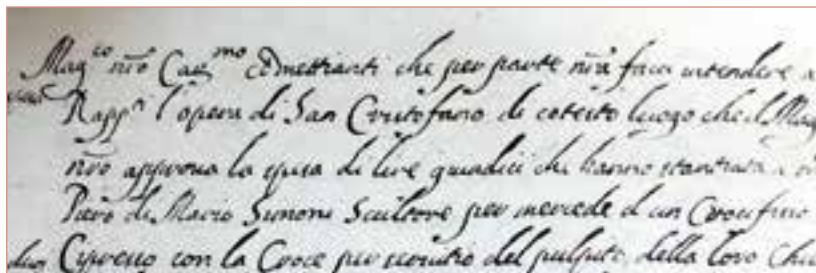 Mag.co nro Car.mo Comettianti che per parte nra facci intendere a
Rapp.ti l'opera di San Cristofano di cotesto luogo che il Mag
nro approva la spesa di lire quindici che hanno stantiata a
Piero di Mario Simoni Scultore per mercede d'un Crocifisso
Cipresso con la Croce per servitio del pulpito della loro